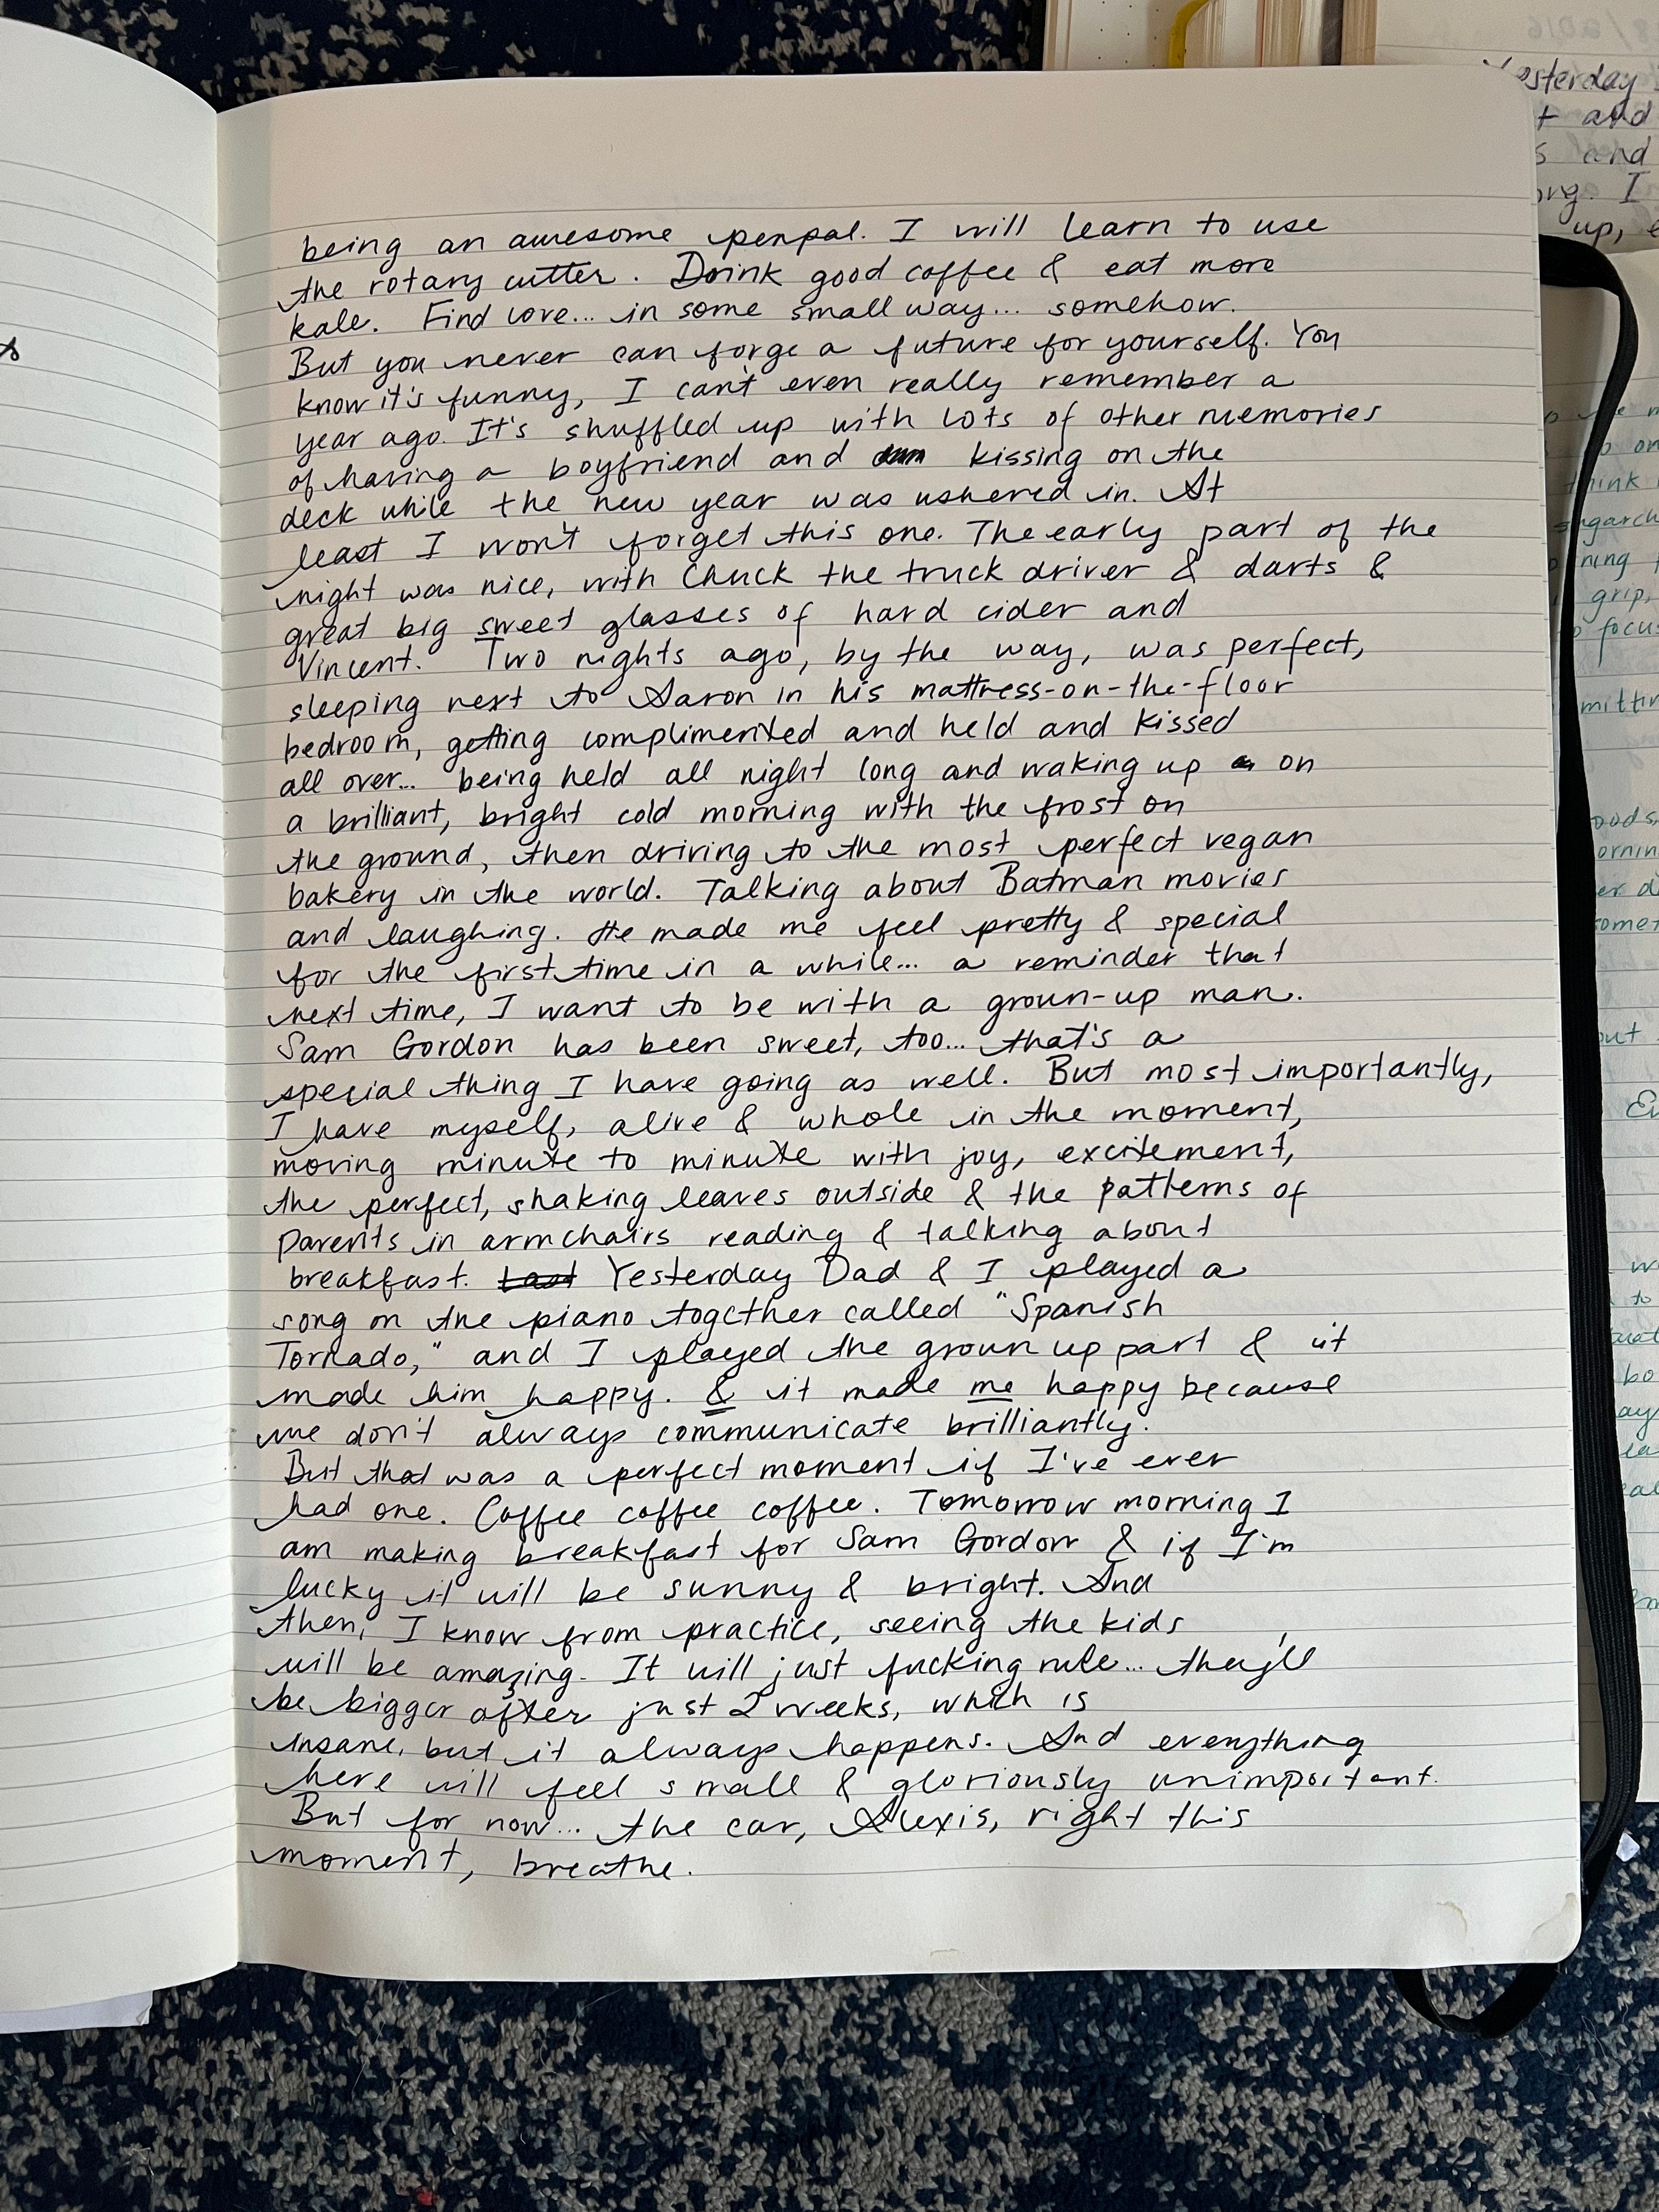 being an awesome penpal. I will learn to use
the rotary cutter. Drink good coffee & eat more
kale. Find love... in some small way... somehow.
But you never can forge a future for yourself. You
know it's funny, I can't even really remember a
year ago. It's shuffled up with lots of other memories
of having a boyfriend and kissing on the
deck while the new year was ushered in. At
least I won't forget this one. The early part of the
night was nice, with Chuck the truck driver & darts &
great big sweet glasses of hard cider and
Vincent. Two nights ago, by the way, was perfect,
sleeping next to Aaron in his mattress-on-the-floor
bedroom, getting complimented and held and kissed
all over... being held all night long and waking up on
a brilliant, bright cold morning with the frost on
the ground, then driving to the most perfect vegan
bakery in the world. Talking about Batman movies
and laughing. He made me feel pretty & special
for the first time in a while... a reminder that
next time, I want to be with a grown-up man.
Sam Gordon has been sweet, too... that's a
special thing I have going as well. But most importantly,
I have myself, alive & whole in the moment,
moving minute to minute with joy, excitement,
the perfect, shaking leaves outside & the patterns of
parents in armchairs reading & talking about
breakfast. Last Yesterday Dad & I played a
song on the piano together called "Spanish
Tornado," and I played the grown up part & it
made him happy. & it made me happy because
we don't always communicate brilliantly.
But that was a perfect moment if I've ever
had one. Coffee coffee coffee. Tomorrow morning I
am making breakfast for Sam Gordon & if I'm
lucky it will be sunny & bright. And
then, I know from practice, seeing the kids
will be amazing. It will just fucking rule... they'll
be bigger after just 2 weeks, which is
insane, but it always happens. And everything
here will feel small & gloriously unimportant.
But for now... the car, Alexis, right this
moment, breathe.
yesterday
and
and
I
up,
think
grip,
focus